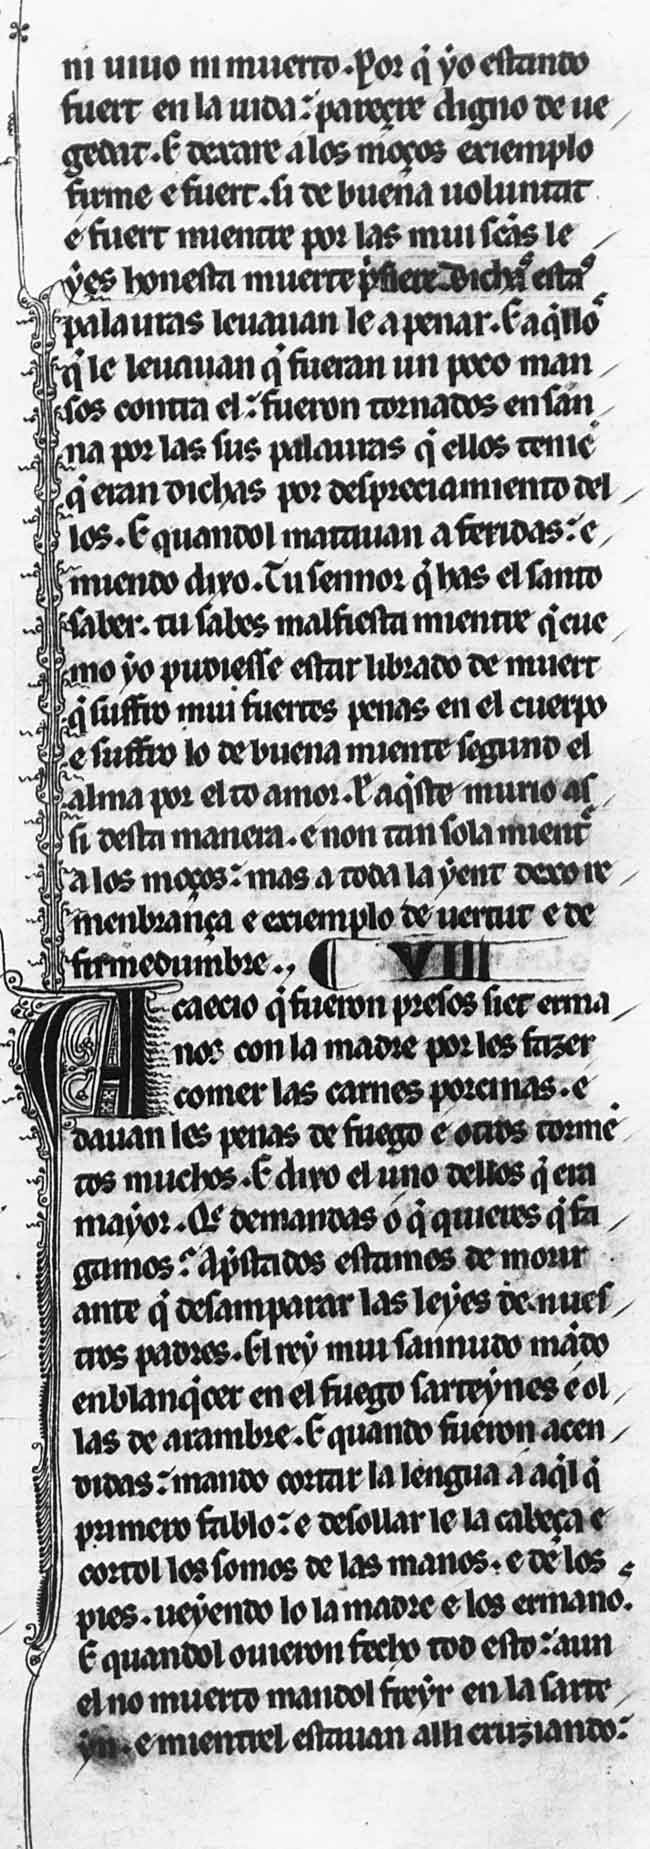 ni uiuo ni muerto. Por q̃ yo estando
fuert en la uida: pareçre digno de ue
gedat. E dexare a los moços exiemplo
firme e fuert. si de buena uoluntat
e fuert mientre por las mui sc̃as le
yes honesta muerte p̃fiere. Dichas estas
palauras leuauan le a penar. E aq̃llos
q̃ le leuauan q̃ fueran un poco man
sos contra el: fueron tornados en san
na por las sus palauras q̃ ellos teniẽ
q̃ eran dichas por despreciamiento del
los. E quandol matauan a feridas: e
miendo dixo. Tu sennor q̃ has el santo
saber. tu sabes malfiesta mientre q̃ cue
mo yo pudiesse estar librado de muert
q̃ suffro mui fuertes penas en el cuerpo
e suffro lo de buena miente segund el
alma por el to amor. E aq̃ste murio as
si desta manera. e non tan sola mient̃
a los moços: mas a toda la yent dexo re
menbrança e exiemplo de uertut e de
firmedumbre. VIII
Acaecio q̃ fueron presos siet erma
nos con la madre por les fazer
comer las carnes porcinas. e
dauan les penas de fuego e otros tormẽ
tos muchos. E dixo el uno dellos q̃ era
mayor. Q̃ demandas o q̃ quieres q̃ fa
gamos? Ap̃stados estamos de morir
ante q̃ desamparar las leyes de nues
tros padres. El rey mui sannudo mãdo
enblanq̃cer en el fuego sarteynes e ol
las de arambre. E quando fueron acen
didas: mando cortar la lengua a aq̃l q̃
primero fablo: e desollar le la cabeça e
cortol los somos de las manos. e de los
pies. ueyendo lo la madre e los ermanos.
E quandol ouieron fecho tod esto: aun
el no muerto mandol freyr en la sarte
yn. e mientrel estauan alli cruziando: